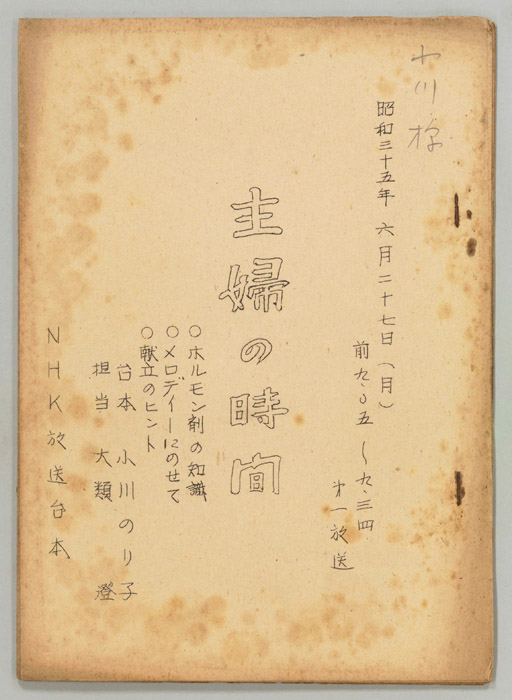 小川様
昭和三十五年 六月二十七日(月)
前九.〇五~九.三四
オ一放送
主婦の時間
○ホルモン剤の知識
○メロディーにのせて
○献立のヒント
台本 小川のり子
担当 大類 澄
NHK放送台本